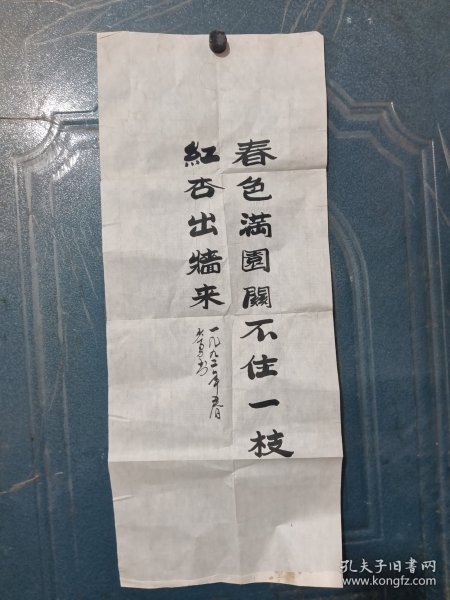 春色满園關不住一枝
紅杏出牆来
一九九二年春
孔夫子旧书网
www.kongfz.com